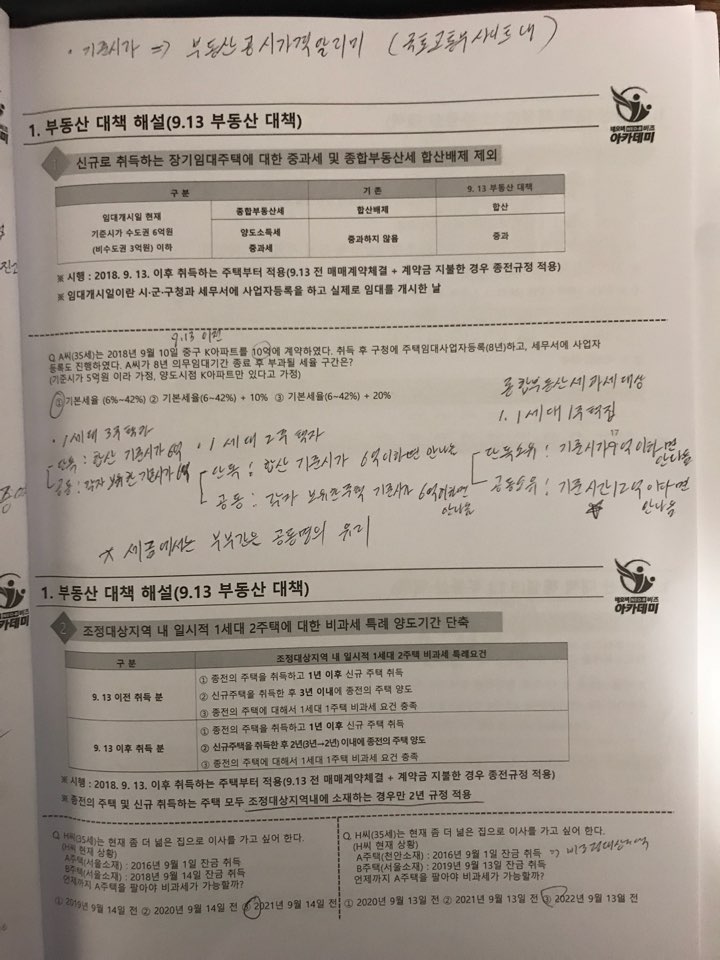 · 기준시가 => 부동산공시가격알리미 (국토교통부사이트 내)
1. 부동산 대책 해설(9.13 부동산 대책)
아카데미
1 신규로 취득하는 장기임대주택에 대한 중과세 및 종합부동산세 합산배제 제외
구 분 기 존 9. 13 부동산 대책
임대개시일 현재
기준시가 수도권 6억원
(비수도권 3억원) 이하
종합부동산세 합산배제 합산
양도소득세
중과세
중과하지 않음 중과
※ 시행 : 2018. 9. 13. 이후 취득하는 주택부터 적용(9.13 전 매매계약체결 + 계약금 지불한 경우 종전규정 적용)
※ 임대개시일이란 시·군·구청과 세무서에 사업자등록을 하고 실제로 임대를 개시한 날
9.13 이전
Q. A씨(35세)는 2018년 9월 10일 중구 K아파트를 10억에 계약하였다. 취득 후 구청에 주택임대사업자등록(8년)하고, 세무서에 사업자
등록도 진행하였다. A씨가 8년 의무임대기간 종료 후 부과될 세율 구간은?
(기준시가 5억원 이라 가정, 양도시점 K아파트만 있다고 가정)
① 기본세율 (6%~42%) ② 기본세율(6~42%) + 10% ③ 기본세율(6~42%) + 20%
종합부동산세 과세대상
1. 1세대 1주택
· 1세대 3주택자
단독 : 합산 기준시가 6억
공동 : 각자 보유한 기준시가 6억
· 1세대 2주택자
단독 : 합산 기준시가 6억이하면 안나옴
공동 : 각자 보유한주택 기준시가 6억이하면
안나옴
단독소유 : 기준시가 9억이하면
안나옴
공동소유 : 기준시가 12억이하면
안나옴
* 세금에서는 부부간은 공동명의 유리
1. 부동산 대책 해설(9.13 부동산 대책)
아카데미
2. 조정대상지역 내 일시적 1세대 2주택에 대한 비과세 특례 양도기간 단축
구 분 조정대상지역 내 일시적 1세대 2주택 비과세 특례요건
9. 13 이전 취득 분
① 종전의 주택을 취득하고 1년 이후 신규 주택 취득
② 신규주택을 취득한 후 3년 이내에 종전의 주택 양도
③ 종전의 주택에 대해서 1세대 1주택 비과세 요건 충족
9. 13 이후 취득 분
① 종전의 주택을 취득하고 1년 이후 신규 주택 취득
② 신규주택을 취득한 후 2년(3년→2년) 이내에 종전의 주택 양도
③ 종전의 주택에 대해서 1세대 1주택 비과세 요건 충족
※ 시행 : 2018. 9. 13. 이후 취득하는 주택부터 적용(9.13 전 매매계약체결 + 계약금 지불한 경우 종전규정 적용)
※ 종전의 주택 및 신규 취득하는 주택 모두 조정대상지역내에 소재하는 경우만 2년 규정 적용
Q. H씨(35세)는 현재 좀 더 넓은 집으로 이사를 가고 싶어 한다.
(H씨 현재 상황)
A주택(서울소재) : 2016년 9월 1일 잔금 취득
B주택(서울소재) : 2018년 9월 14일 잔금 취득
언제까지 A주택을 팔아야 비과세가 가능할까?
① 2019년 9월 14일 전 ② 2020년 9월 14일 전 ③ 2021년 9월 14일 전
Q. H씨(35세)는 현재 좀 더 넓은 집으로 이사를 가고 싶어 한다.
(H씨 현재 상황)
A주택(천안소재) : 2016년 9월 1일 잔금 취득 => 비조정대상지역
B주택(서울소재) : 2019년 9월 13일 잔금 취득
언제까지 A주택을 팔아야 비과세가 가능할까?
① 2020년 9월 13일 전 ② 2021년 9월 13일 전 ③ 2022년 9월 13일 전